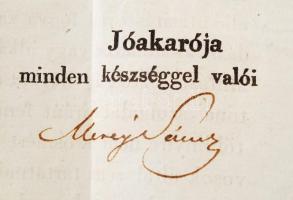 Jóakarója
minden készséggel valói
Merey Sámuel